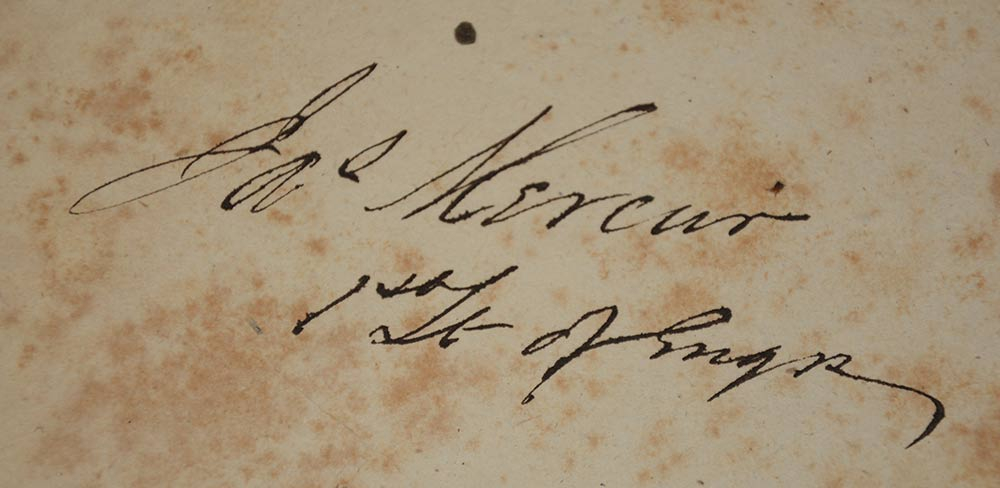 Jas Mercur
1st Lt of Engrs